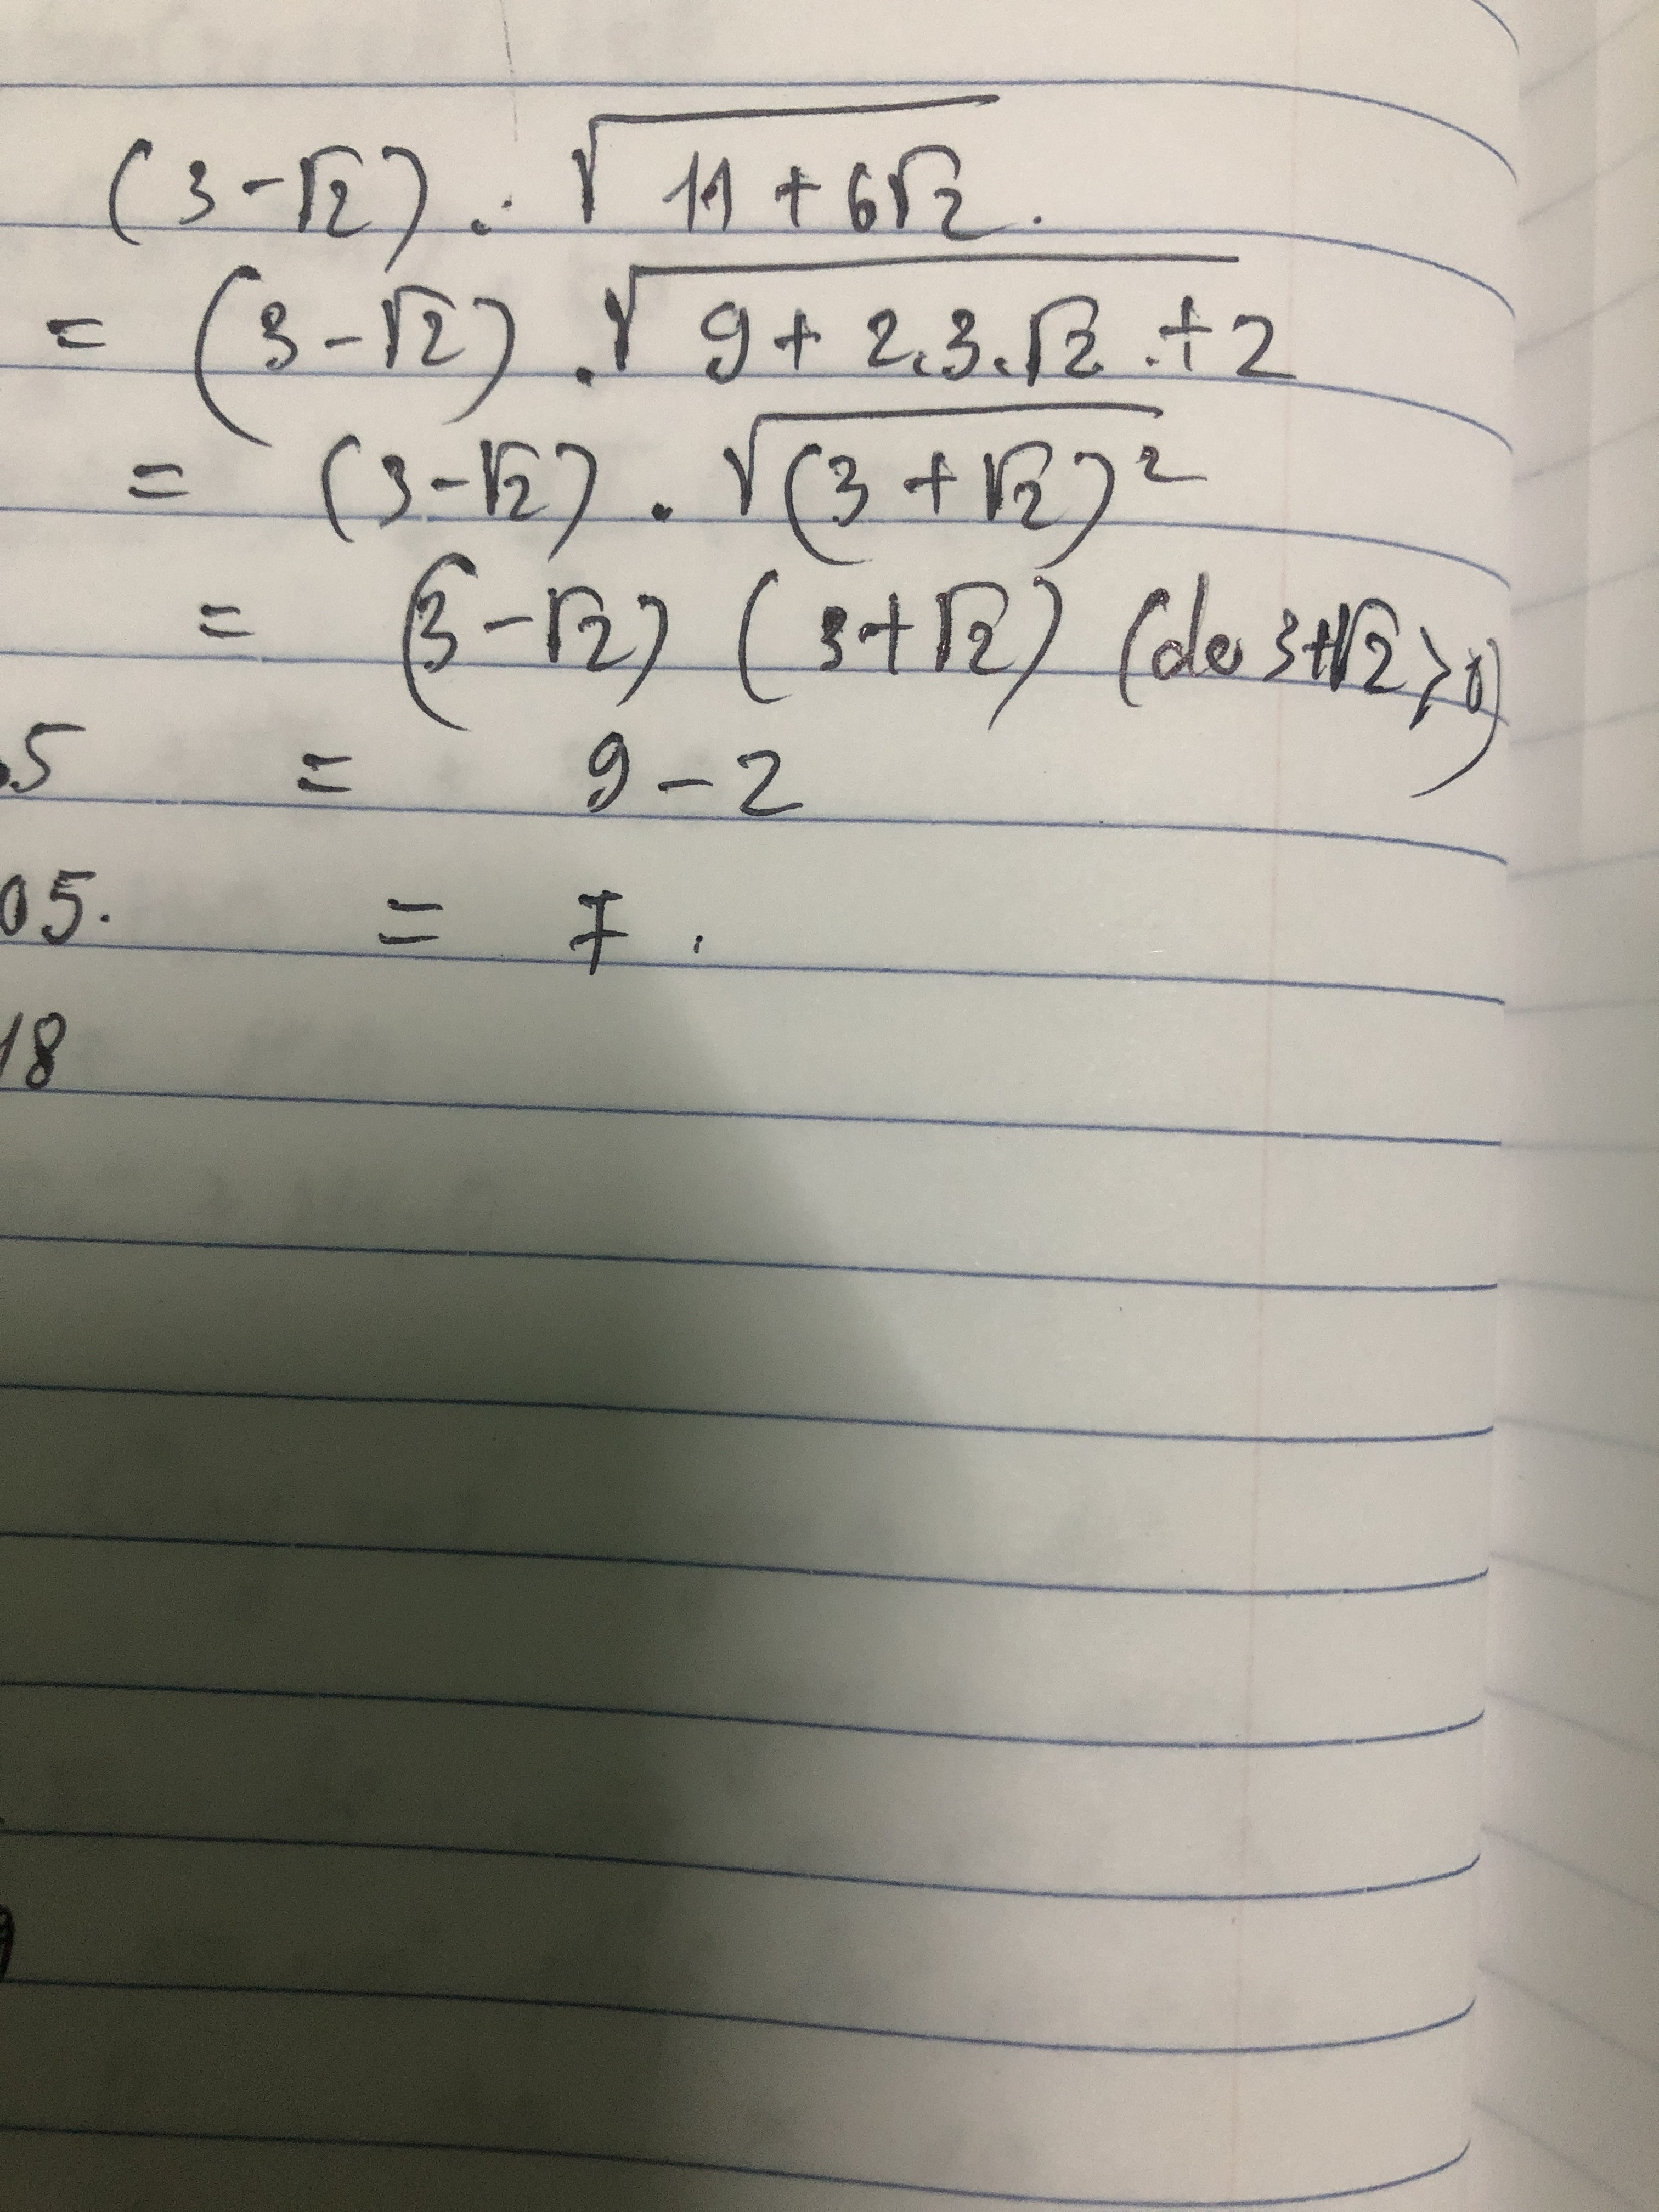 (3-√2) . √(11+6√2).
= (3-√2) . √(9+2.3.√2.+2
= (3-√2) . √(3+√2)²
= (3-√2) (3+√2) (do 3+√2>0)
.5 = 9-2
05. = 7.
18